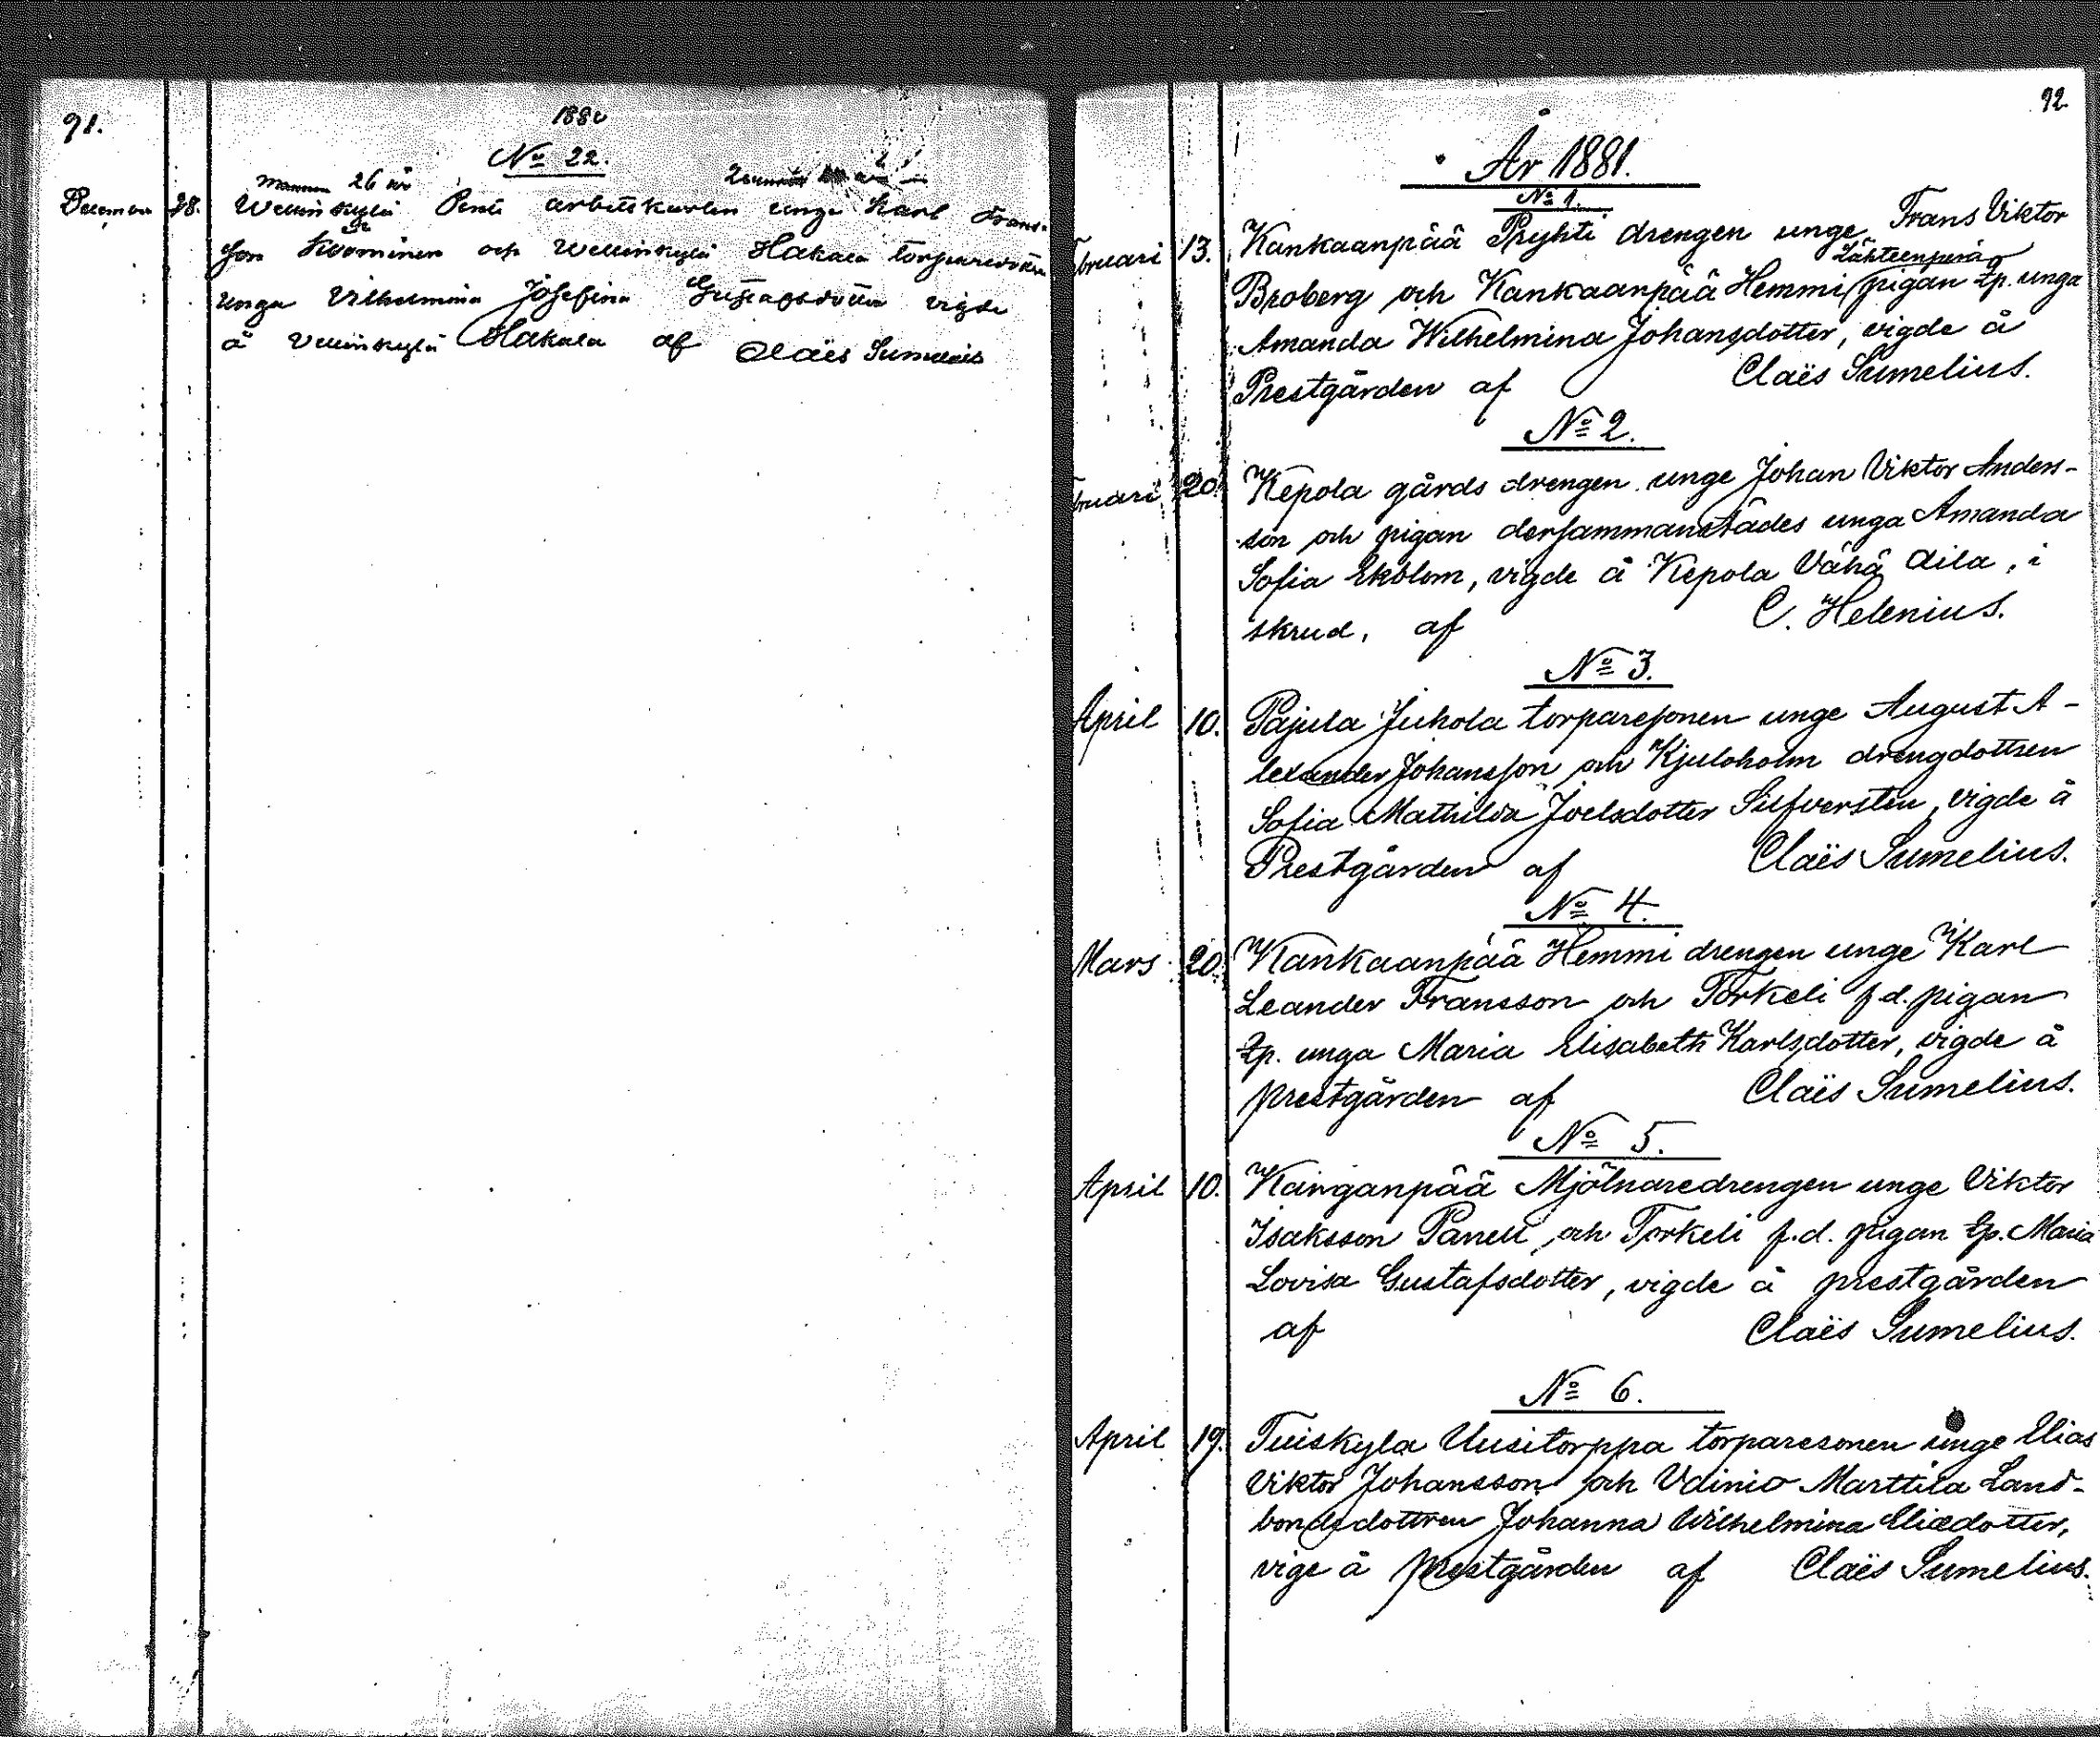 91.
1880
No 22.
26 år
December 28. Wellinkylä Penti arbetskarlen unge Karl Frans-
son och Wellinkylä Hakala
unga Vilhelmina Josefina Gustafsdotter vigde
å Vellinkylä Hakala af Claës Sumelius
92
År 1881.
No 1.
bruari 13. Kankaanpää Pryhti drengen unge Frans Viktor
Lähteenperä
Broberg och Kankaanpää Hemmi pigan tp. unga
Amanda Wilhelmina Johansdotter, vigde å
Prestgården af Claës Sumelius.
No 2.
bruari 20. Kepola gårds drengen unge Johan Viktor Anders-
son och pigan dersammanstädes unga Amanda
Sofia Ekblom, vigde å Kepola Vähä Aila, i
skrud, af C. Helenius.
No 3.
April 10. Pajula Juhola torparesonen unge August A-
lexander Johansson och Kjuloholm drengdottren
Sofia Mathilda Joelsdotter Silfversten, vigde å
Prestgården af Claës Sumelius.
No 4.
Mars 20. Kankaanpää Hemmi drengen unge Karl
Leander Fransson och Torkeli f.d. pigan
tp. unga Maria Elisabeth Karlsdotter, vigde å
prestgården af Claës Sumelius.
No 5.
April 10. Kanganpää Mjölnaredrengen unge Viktor
Isaksson Panell och Torkeli f.d. pigan tp. Maria
Lovisa Gustafsdotter, vigde å prestgården
af Claës Sumelius.
No 6.
April 19. Tuiskyla Uusitorppa torparesonen unge Elias
Viktor Johansson och Vainio Marttila Land-
bondsdottren Johanna Wilhelmina Eliædotter,
vige å prestgården af Claës Sumelius.